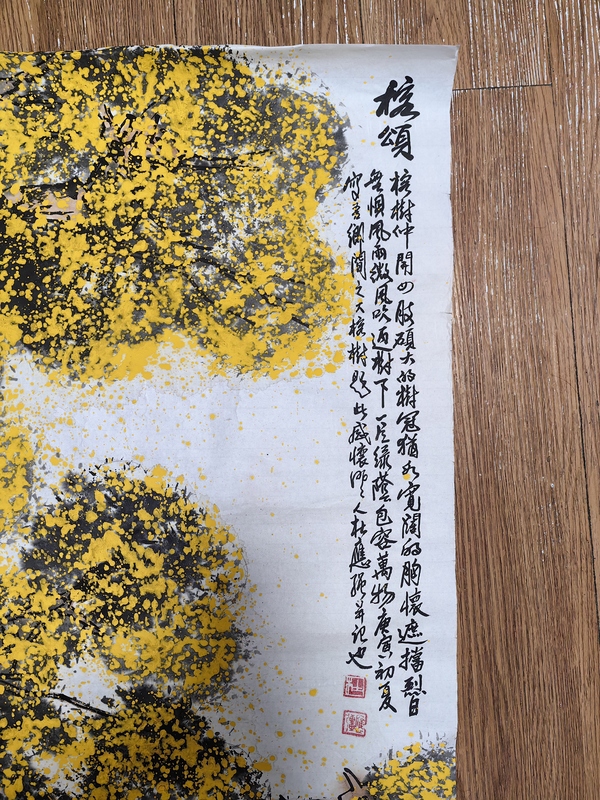 榕頌
榕樹伸開四肢碩大的樹冠猶如寬闊的胸懷遮擋烈日
無懼風雨微風吹過樹下一片綠蔭包容萬物庚寅初夏
寫吾鄉間之大榕樹題此感懷人杜應強並記也
杜